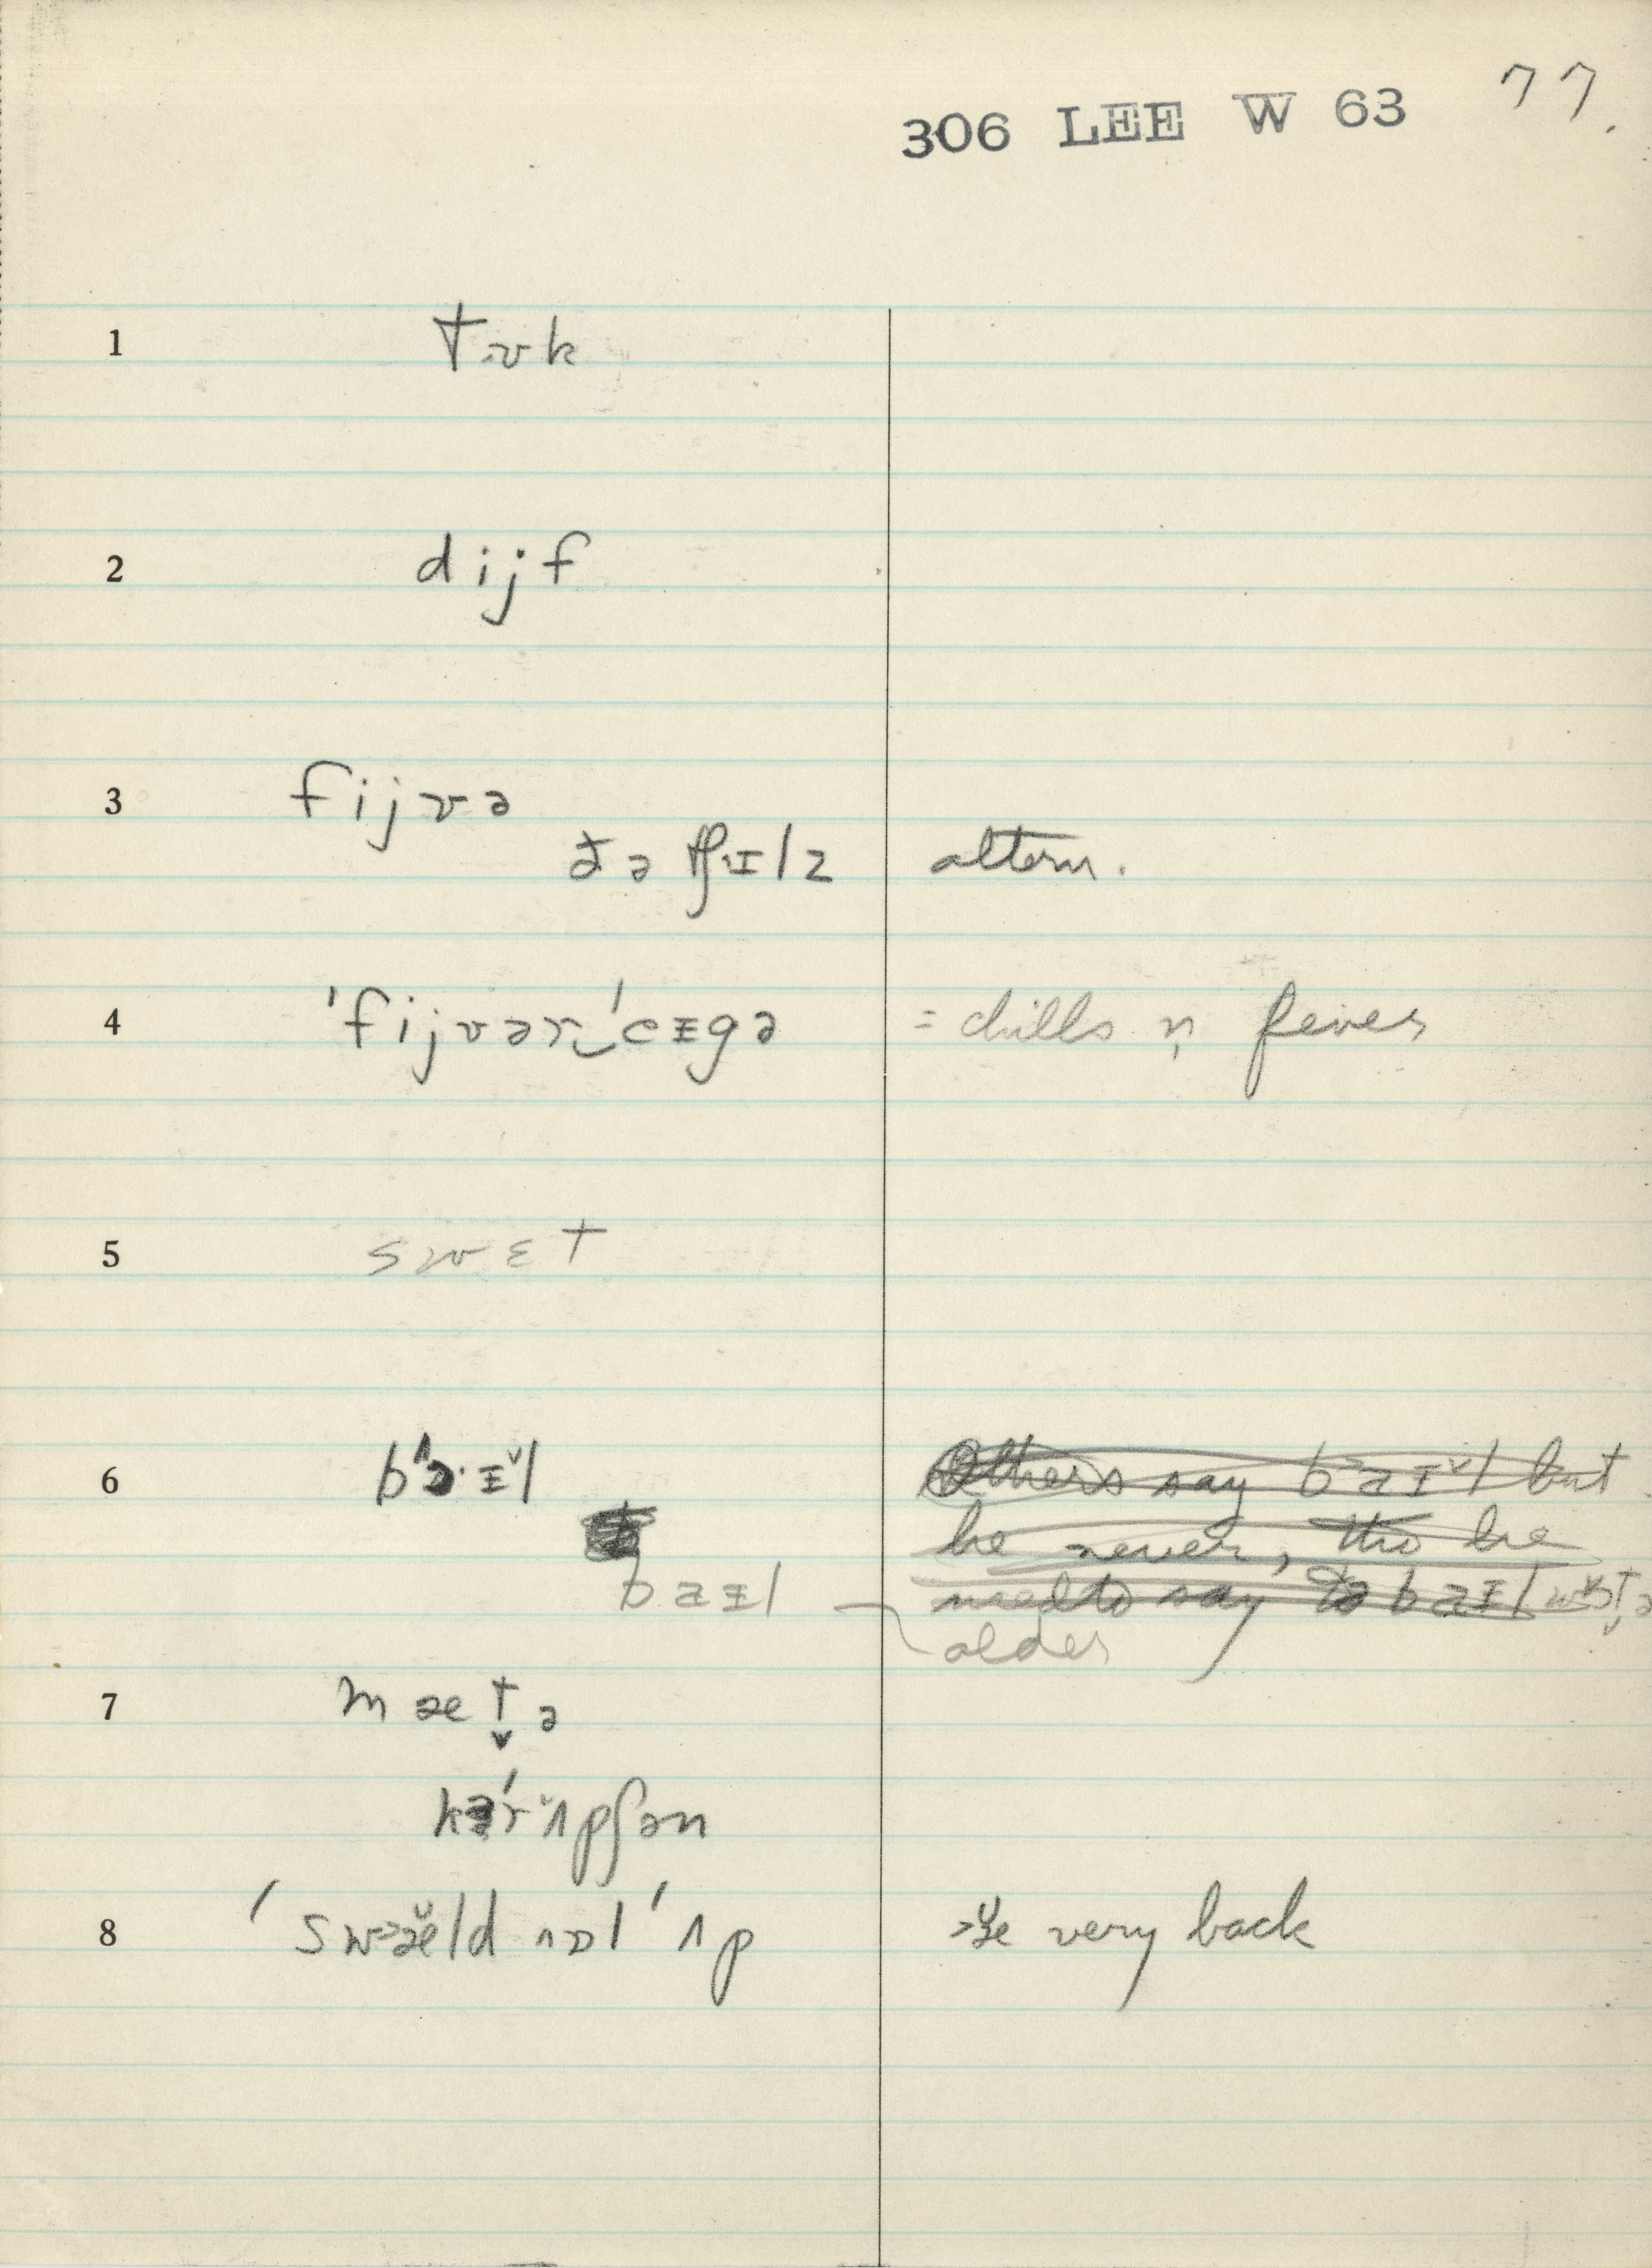 306 LEE W 63 77.
1 tʊk
2 dijf
3 fijvə
ðə tʃɪlz altern.
4 ˈfijvər‿ˈeɪgə = chills n̩ fever
5 swɛt
6 bɔ·ɪ̌l Others say baɪ̌l but
he never, tho he
baɪl used to say baɪl
older
7 mætə
kəˈrʌpʃən
8 ˈswæld ɔl ˈʌp æ very back